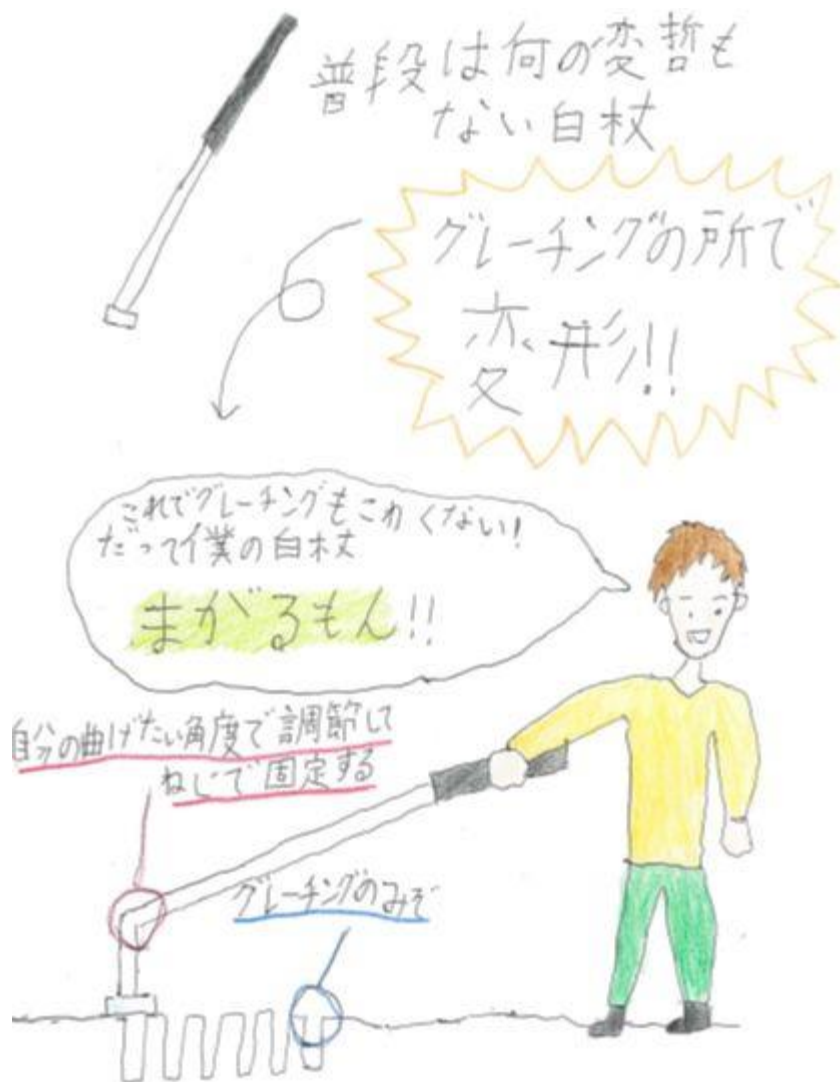 普段は何の変哲も
ない白杖
グレーチングの所で
変形!!
これでグレーチングもこわくない!
だって僕の白杖
まがるもん!!
自分の曲げたい角度で調節して
ねじで固定する
グレーチングのみぞ